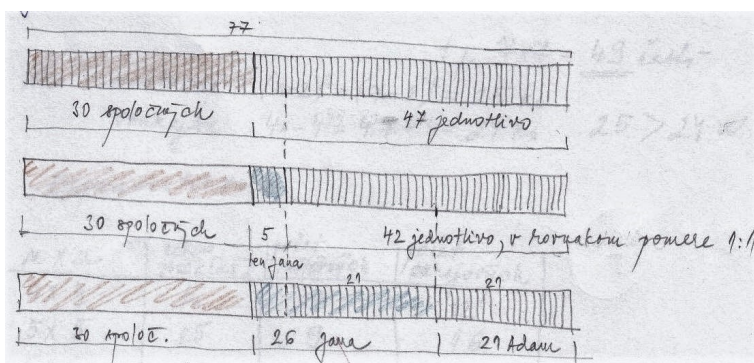 77
30 spoločných 47 jednotlivo
30 spoločných 5 42 jednotlivo, v rovnakom pomere 1:1
len Jana
21 21
30 spoloč. 26 Jana 21 Adam